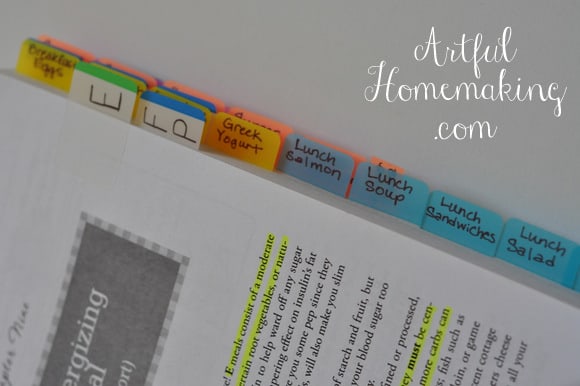 Artful
Homemaking
.com
Breakfast
Eggs
E
F
P
Greek
Yogurt
Lunch
Salmon
Lunch
Soup
Lunch
Sandwiches
Lunch
Salad
pter Nine
ergizing
al
ort)
E meals consist of a moderate
ertain root vegetables, or natu-
to help ward off any sugar
pering effect on insulin's fat
you some pep since they
s, will also make you slim
of starch and fruit, but
your blood sugar too
fined or processed,
ey must be cen-
more carbs can
fish such as
on, or game
tent cottage
cheese
all your